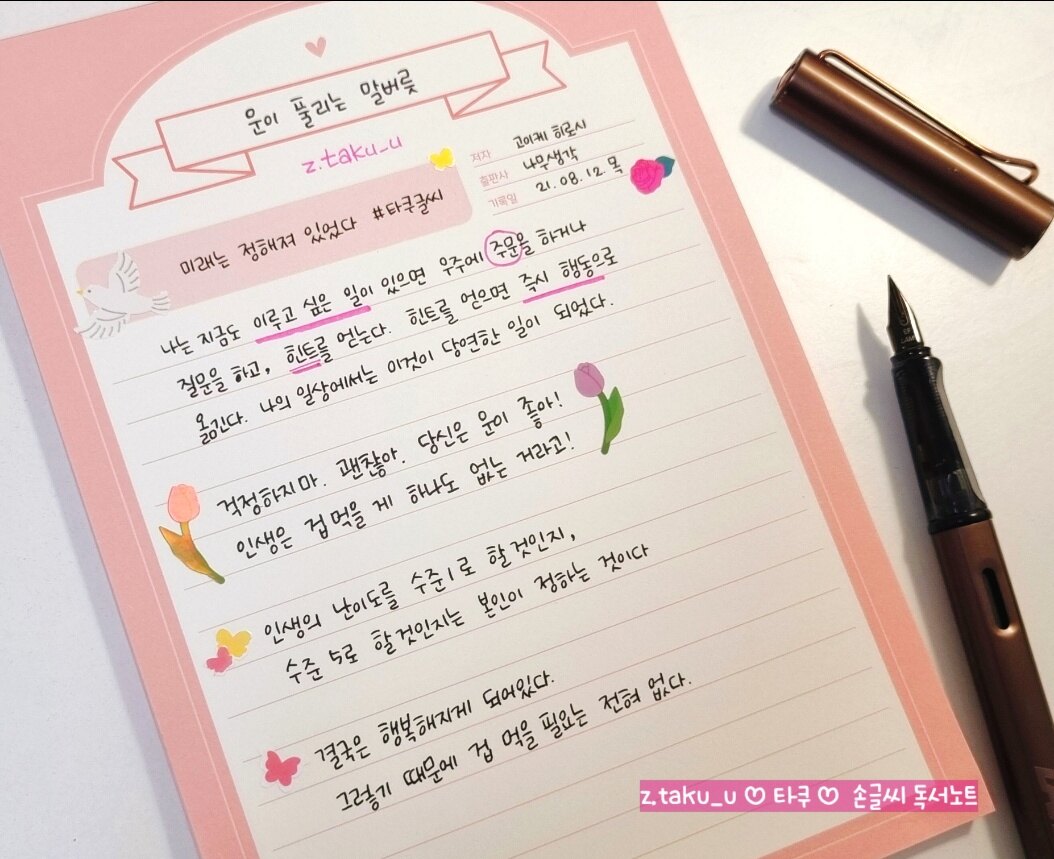 운이 풀리는 말버릇
z.taku_u
저자 고이케 히로시
출판사 나무생각
기록일 21.08.12 목
미래는 정해져 있었다 #타쿠글씨
나는 지금도 이루고 싶은 일이 있으면 우주에 주문을 하거나
질문을 하고, 힌트를 얻는다. 힌트를 얻으면 즉시 행동으로
옮긴다. 나의 일상에서는 이것이 당연한 일이 되었다.
걱정하지마. 괜찮아. 당신은 운이 좋아!
인생은 겁먹을 게 하나도 없는 거라고!
인생의 난이도를 수준1로 할것인지,
수준 5로 할것인지는 본인이 정하는 것이다
결국은 행복해지게 되어있다.
그렇기 때문에 겁 먹을 필요는 전혀 없다.
z.taku_u ♡ 타쿠 ♡ 손글씨 독서노트